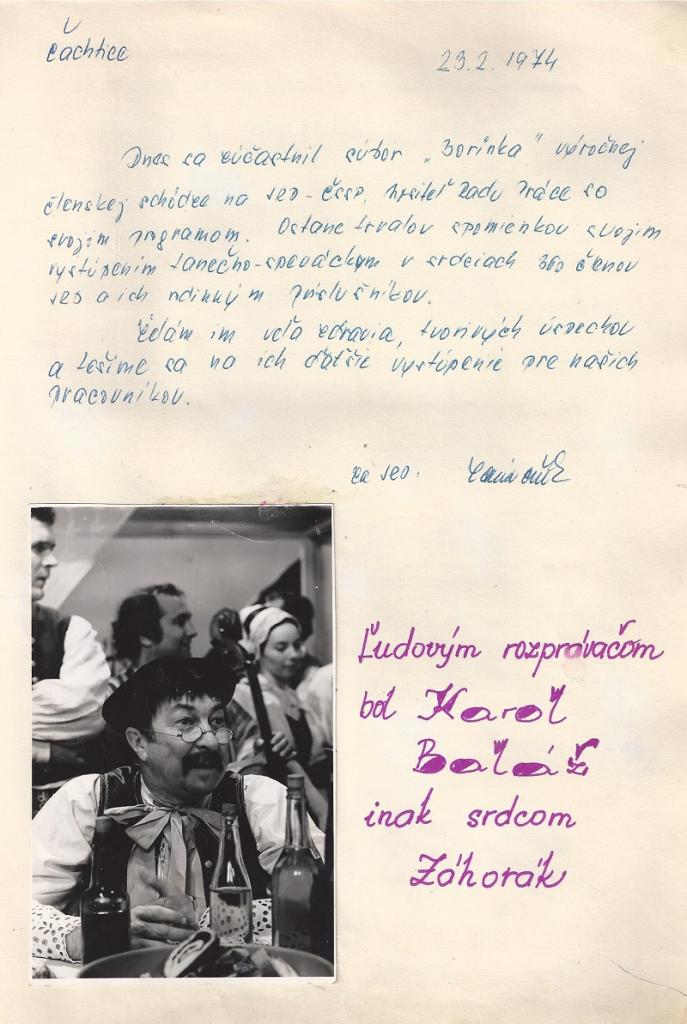 V
Čachtice 23.2.1974
Dnes sa zúčastnil súbor „Borinka" výročnej
členskej schôdze na JRD - ČSSP, nositeľ Radu Práce so
svojim programom. Ostane trvalou spomienkou svojim
vystúpením tanečno-speváckym v srdciach 360 členov
JRD a ich rodinným príslušníkov.
Želám im veľa zdravia, tvorivých úspechov
a tešíme sa na ich ďalšie vystúpenie pre našich
pracovníkov.
za JRD:
Ľudovým rozprávačom
bol Karol
Baláž
inak srdcom
Záhorák